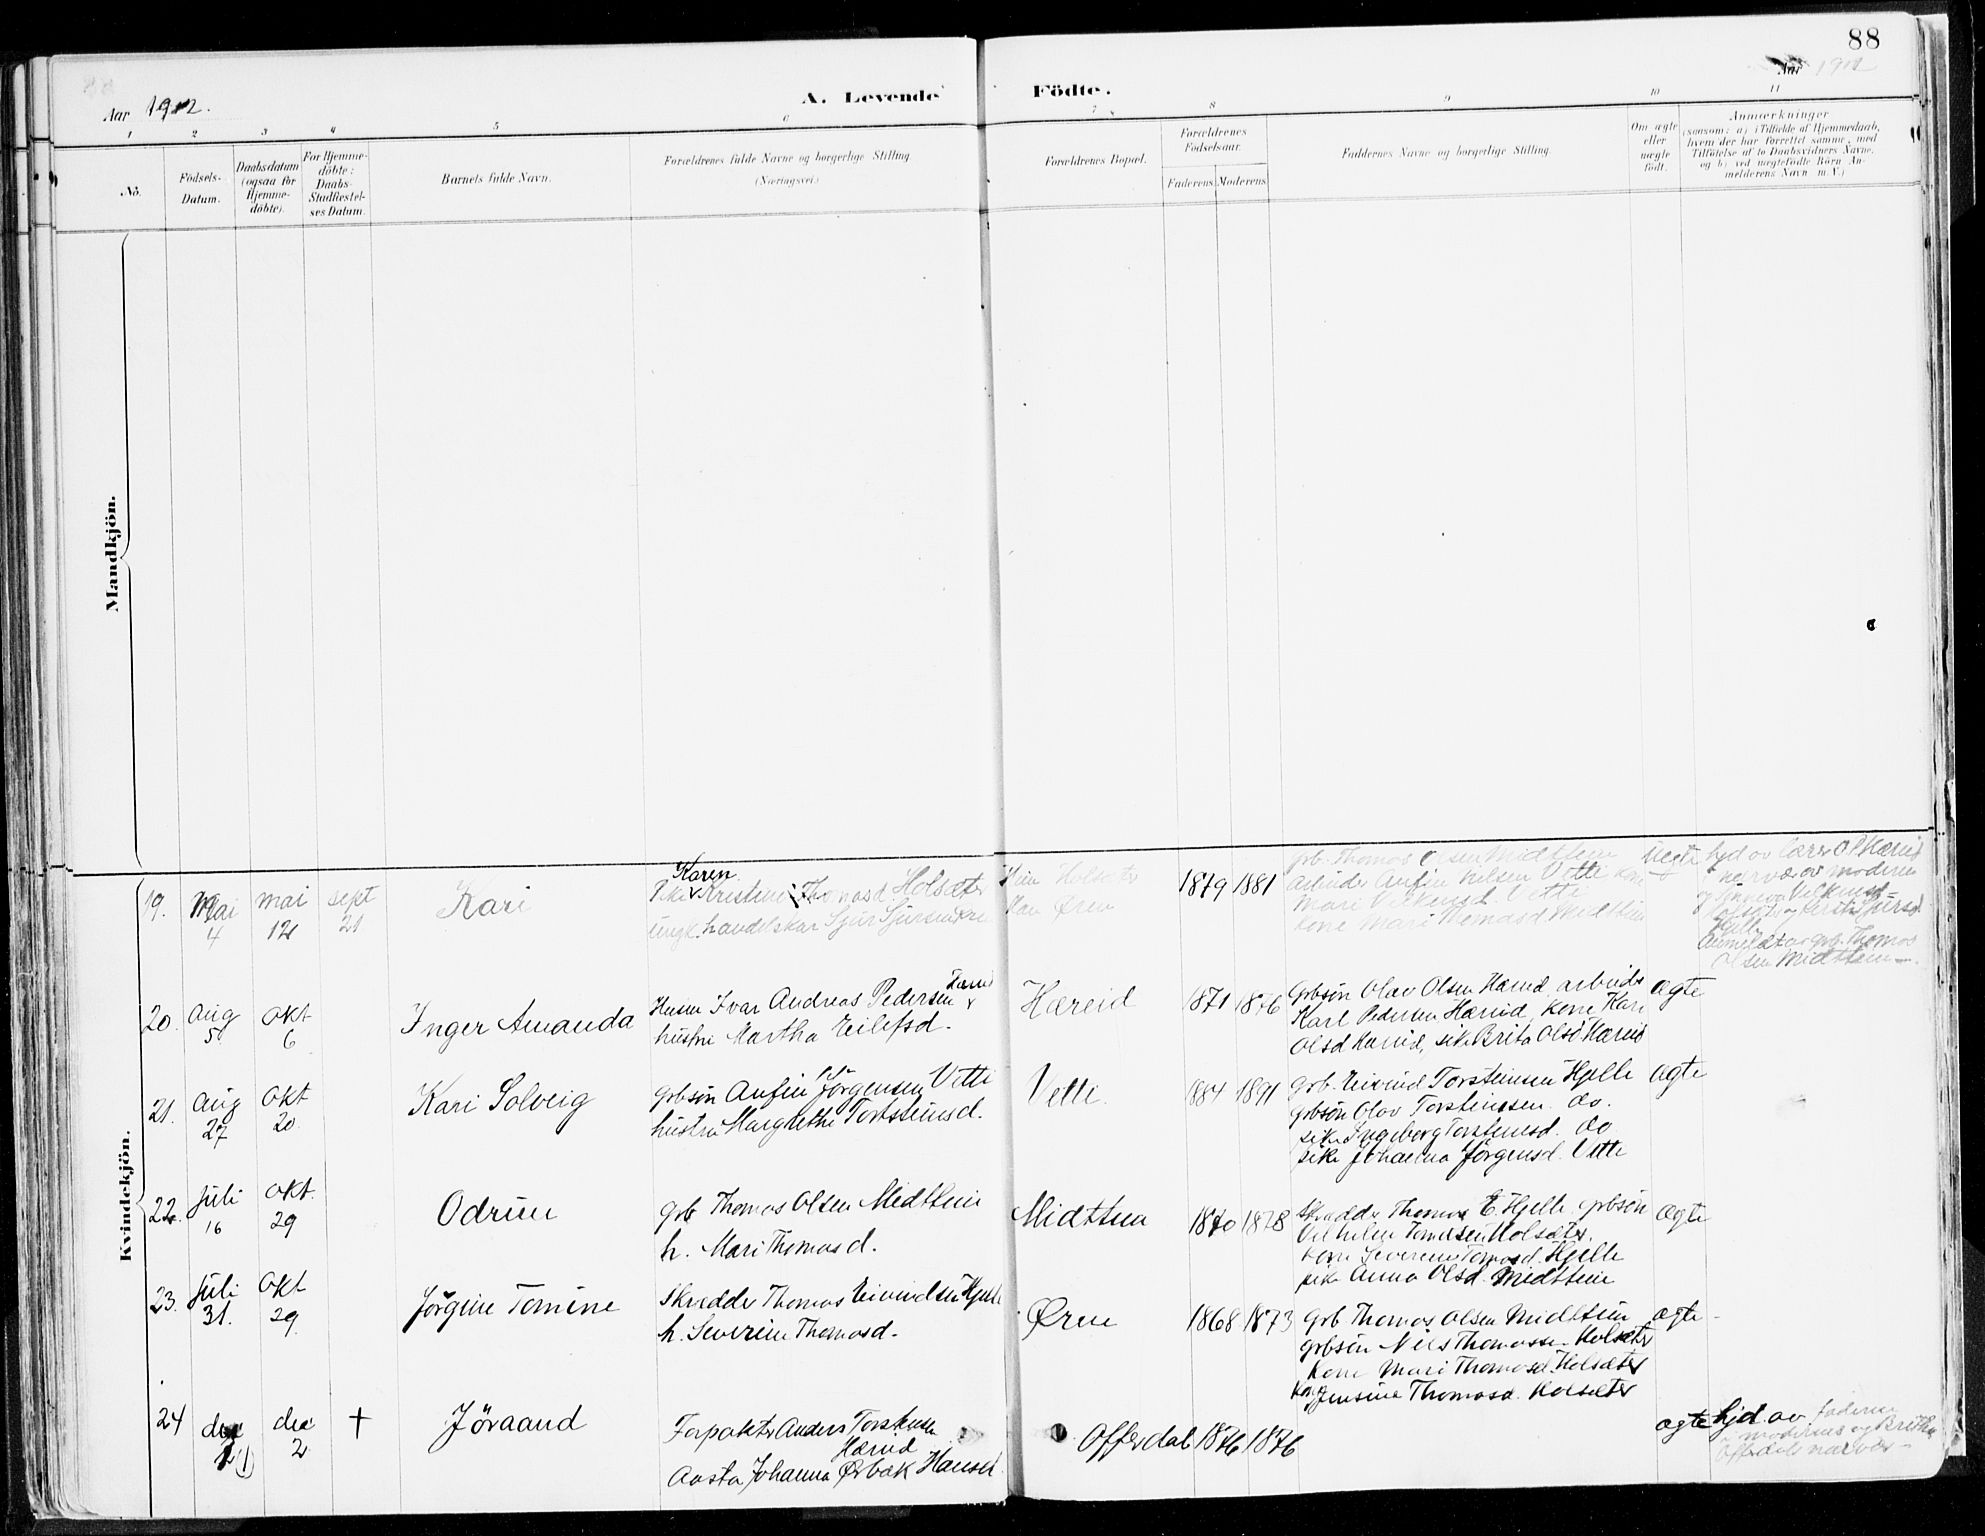 88
Aar 1912.
A. Levende Födte.
Aar 1912
1 2 3 4 5 6 7 8 9 10 11
No.
Födsels-Datum.
Daabsdatum (ogsaa for Hjemmedöbte).
For Hjemmedöbte: Daabs-Stadfæstelses Datum.
Barnets fulde Navn.
Forældrenes fulde Navne og borgerlige Stilling (Næringsvei.)
Forældrenes Bopæl.
Forældrenes Födselsaar.
Faderens. Moderens.
Faddernes Navne og borgerlige Stilling.
Om ægte eller uægte födt.
Anmærkninger
(saasom: a) i Tilfælde af Hjemmedaab,
hvem der har forrettet samme, med
Tilföielse af to Daabsvidners Navne,
og b) ved uægtefödte Börn An-
melderens Navn m. V.)
Mandkjön.
Kvindekjön.
19. Mai 4 mai 12 sept 21 Kari
Karen
Kristine Thomasd. Holsæter
ungk. handelskar Sjur Sjursen
Holsæter
Øren
1879 1881
grb. Thomas Olsen Midttun
arbeider Anfin Nilsen Vetti
Mari Vetti
kone Mari Thomasd Midttun
uegte
hjd av lærer O P Hæreid
nærvær av moderen
Hjelle
Anmeldt av grb. Thomas
Olsen Midttun
20. Aug 5 Okt 6 Inger Amanda
Husm Ivar Andreas Pedersen Hæreid
hustru Martha Eilefsd.
Hæreid 1871 1876
Grbsøn Olav Olsen Hæreid, arbeider
Karl Pedersen Hæreid, kone Kari
Olsd Hæreid, pike Brita Olsd Hæreid
ægte
21. Aug 27 Okt 20 Kari Solveig
grbsøn Anfin Jørgensen Vetti
hustru Margrethe Torsteinsd.
Vetti. 1884 1891
grb. Eivind Torsteinsen Hjelle
grbsøn Olav Torsteinsen do.
pike Ingeborg Torsteinsd. do
pike Johanna Jørgensd. Vetti
ægte
22. Juli 16 Okt. 29 Odrun
grb Thomas Olsen Midttun
h. Mari Thomasd.
Midttun 1870 1878
Skrædder Thomas E. Hjelle, grbsøn
Vilhelm Holsæter.
kone Severine Tomasd. Hjelle
pike Anna Olsd. Midttun
ægte
23. Juli 31. Okt 29. Jørgine Tomine
Skrædder Thomas Eivindsen Hjelle
h. Severine Thomasd.
Øren 1868 1873
Grb Thomas Olsen Midttun
grbsøn Nils Thomassen Holsæter
kone Mari Thomasd. Holsæter
kone Jensine Thomasd. Holsæter
ægte
24 dec 1 dec 2 † Jøraand
Forpakter Anders Torsteinsen
Hæreid
Aasta Johanna Ørbæk Hansd.
Offerdal 1876 1876
ægte hjd. av faderen
moderens og Brithe
Offerdals nærvær